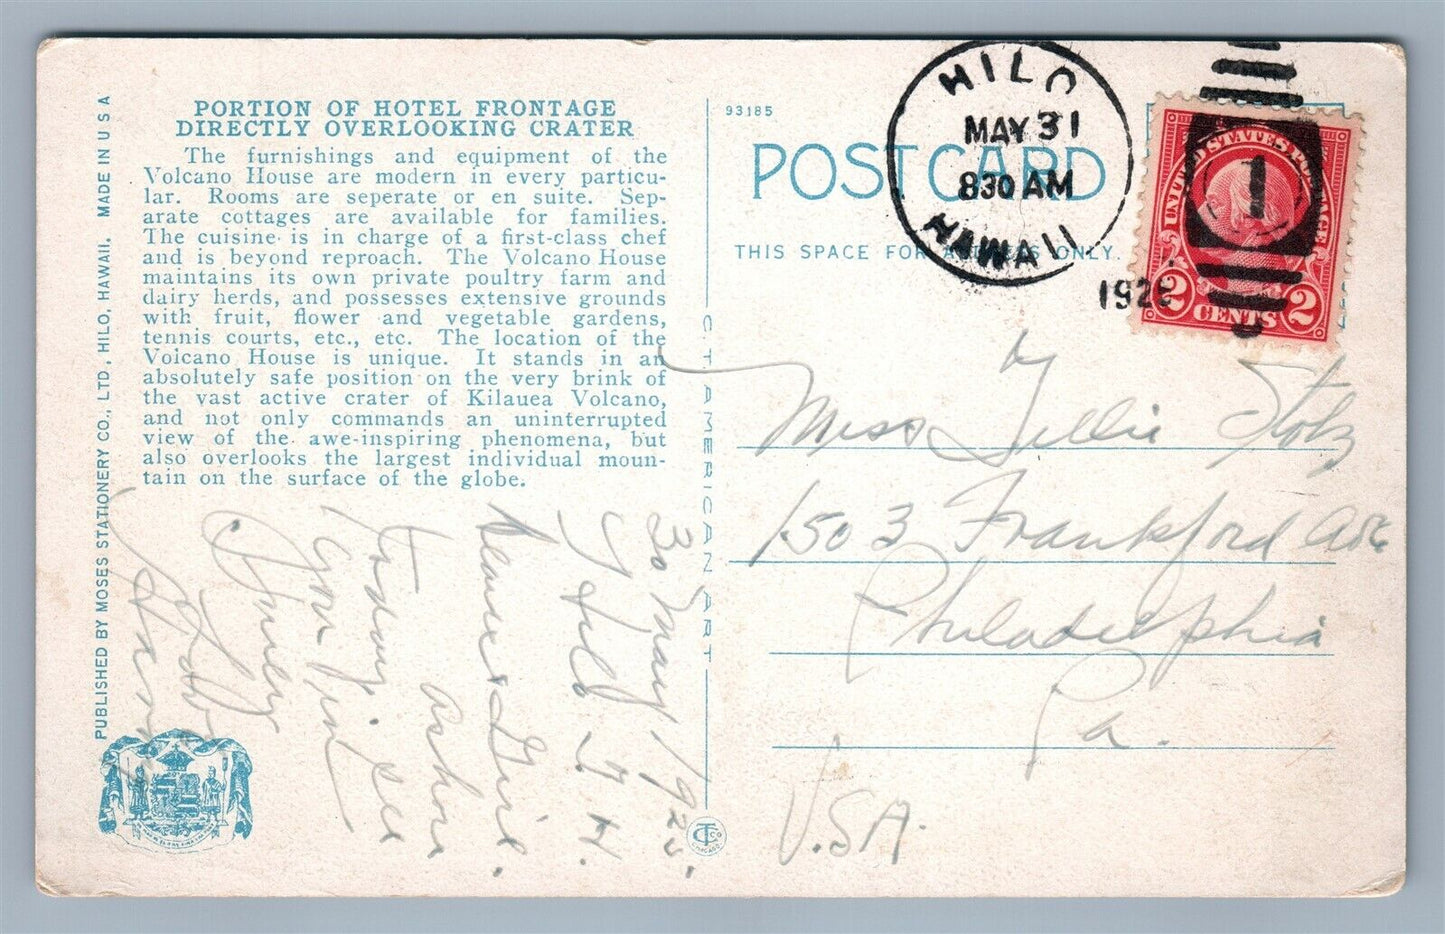 PORTION OF HOTEL FRONTAGE
DIRECTLY OVERLOOKING CRATER
The furnishings and equipment of the
Volcano House are modern in every particu-
lar. Rooms are seperate or en suite. Sep-
arate cottages are available for families.
The cuisine is in charge of a first-class chef
and is beyond reproach. The Volcano House
maintains its own private poultry farm and
dairy herds, and possesses extensive grounds
with fruit, flower and vegetable gardens,
tennis courts, etc., etc. The location of the
Volcano House is unique. It stands in an
absolutely safe position on the very brink of
the vast active crater of Kilauea Volcano,
and not only commands an uninterrupted
view of the awe-inspiring phenomena, but
also overlooks the largest individual moun-
tain on the surface of the globe.
PUBLISHED BY MOSES STATIONERY CO., LTD., HILO, HAWAII. MADE IN U S A
30 May 1925.
Hilo T. H.
Dear Girl.
ashore
today. See
your
C. T. AMERICAN ART
93185
POST CARD
THIS SPACE FOR ADDRESS ONLY.
HILO
MAY 31
830 AM
HAWAII
192
UNITED STATES POSTAGE
1
2 CENTS 2
Miss Tillie Stotz
1503 Frankford Ave
Philadelphia
Pa.
U.S.A.
CT CO
CHICAGO